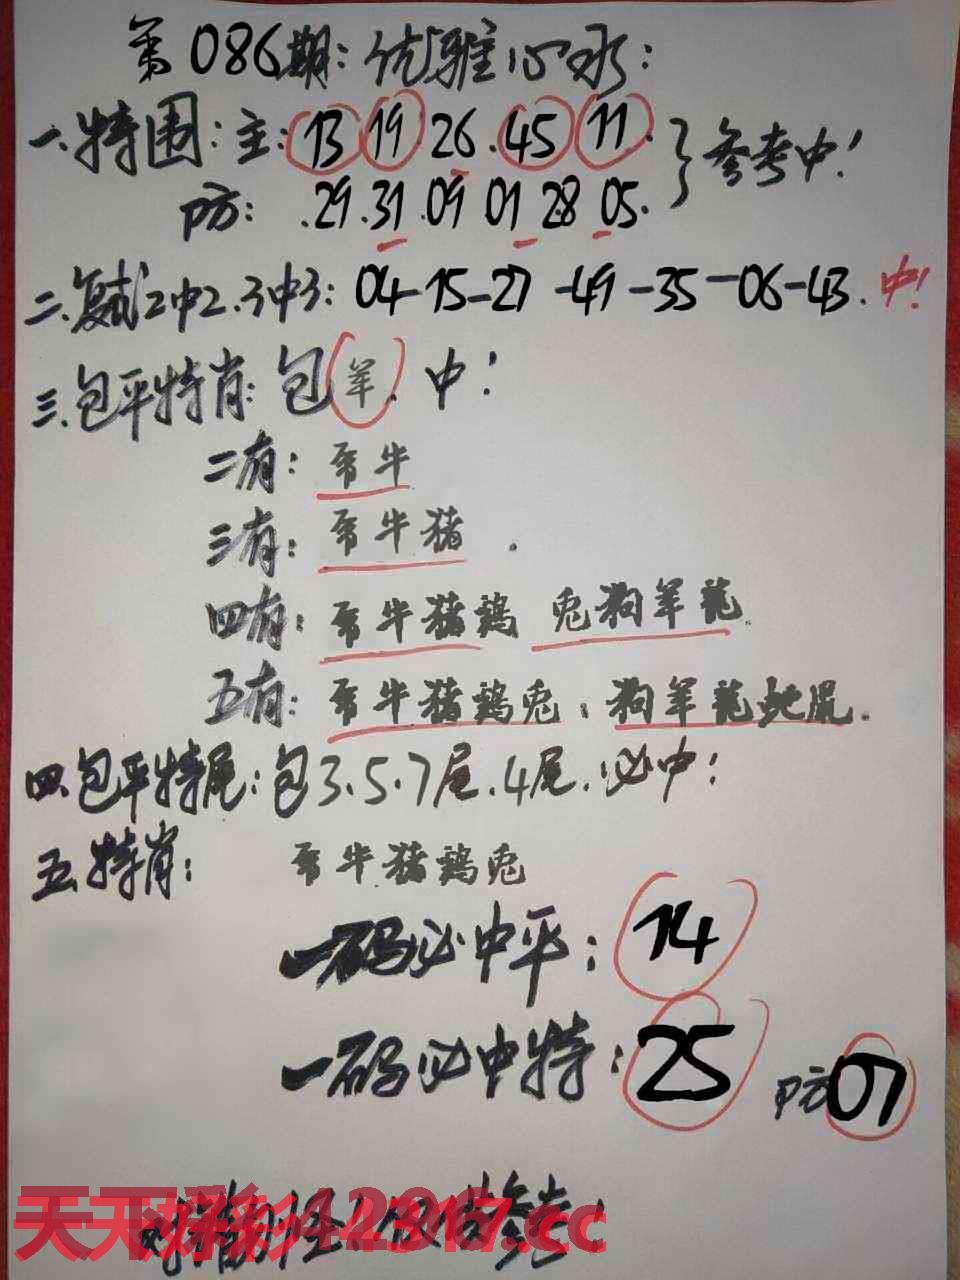 第086期:优雅心水:
一.特围:主:13 19 26.45 11.
防: .29.31.09 01 28 05.
}参考中!
二.复试2中2.3中3: 04-15-27-49-35-06-43.中!
三.包平特肖:包羊.中!
二有: 牛
三有: 牛猪.
四有: 牛猪鸡 兔狗羊龍.
五有: 牛猪鸡兔:狗羊龍蛇鼠.
四.包平特尾:包3.5.7尾.4尾.必中!
五.特肖: 牛猪鸡兔
一码必中平:14
一码必中特:25 防07
天下彩 .cc
参考!